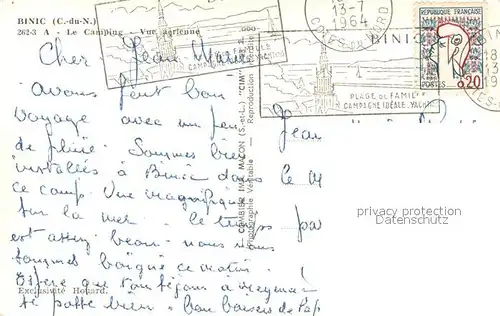 BINIC (C.-du-N.)
262-3 A - Le Camping - Vue aérienne
Cher Jean Marie
avons fait bon
voyage avec un peu
de pluie. Sommes bien
installés à Binic dans
ce camp. Vue magnifique
sur la mer. Le temps
est assez beau - nous nous
sommes baigné ce matin.
espère que ton séjour à
se passe bien. bon baisers de Pap
Exclusivité Houard.
COMBIER IMP. MACON (S.-et-L.) "CIM"
Photographie Véritable - Reproduction
13-7
1964
COTES-DU-NORD
BINIC
PLAGE DE FAMILLE
CAMPAGNE IDÉALE. YACHT
REPUBLIQUE FRANÇAISE
POSTES
0,20
Jean
privacy protection
watermark